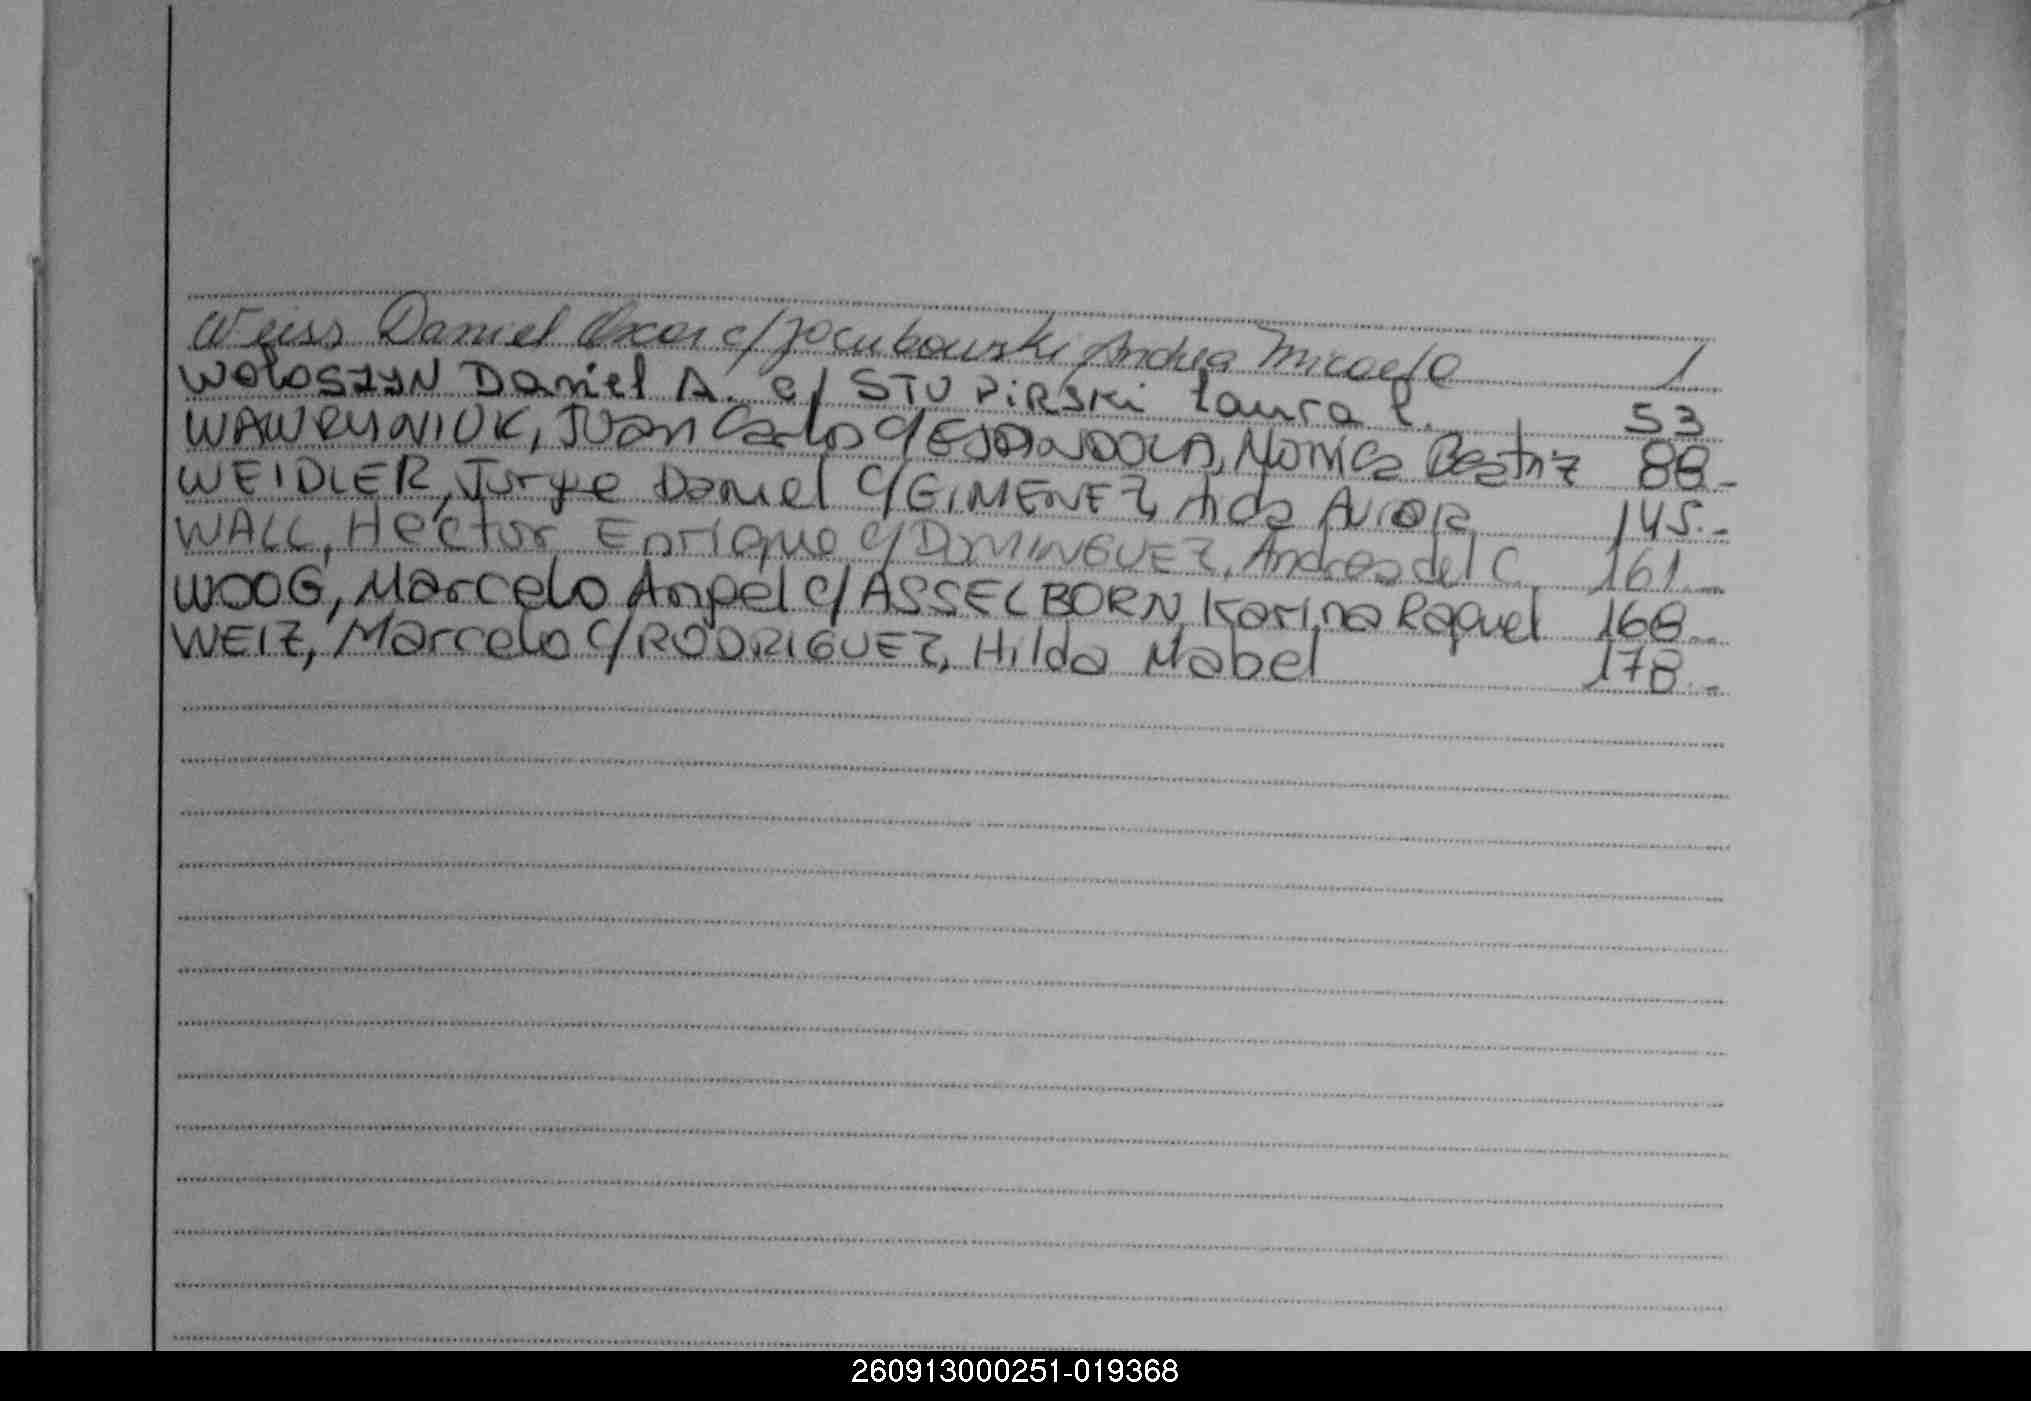 Weiss Daniel Oscar c/ Jocubowski Andrea Micaela 1
WOLOSZYN Daniel A. c/ STUPIRSKI Laura C. 53
WAWRYNIUK, Juan Carlos c/ Monica Beatriz 88.-
WEIDLER, Jorge Daniel c/ GIMENEZ, Aida 145.-
WALL, Hector Enrique c/ DOMINGUEZ, Andrea del C. 161.-
WOOG, Marcelo Angel c/ ASSELBORN, Karina Raquel 168.-
WEIZ, Marcelo c/ RODRIGUEZ, Hilda Mabel 178.-
260913000251-019368